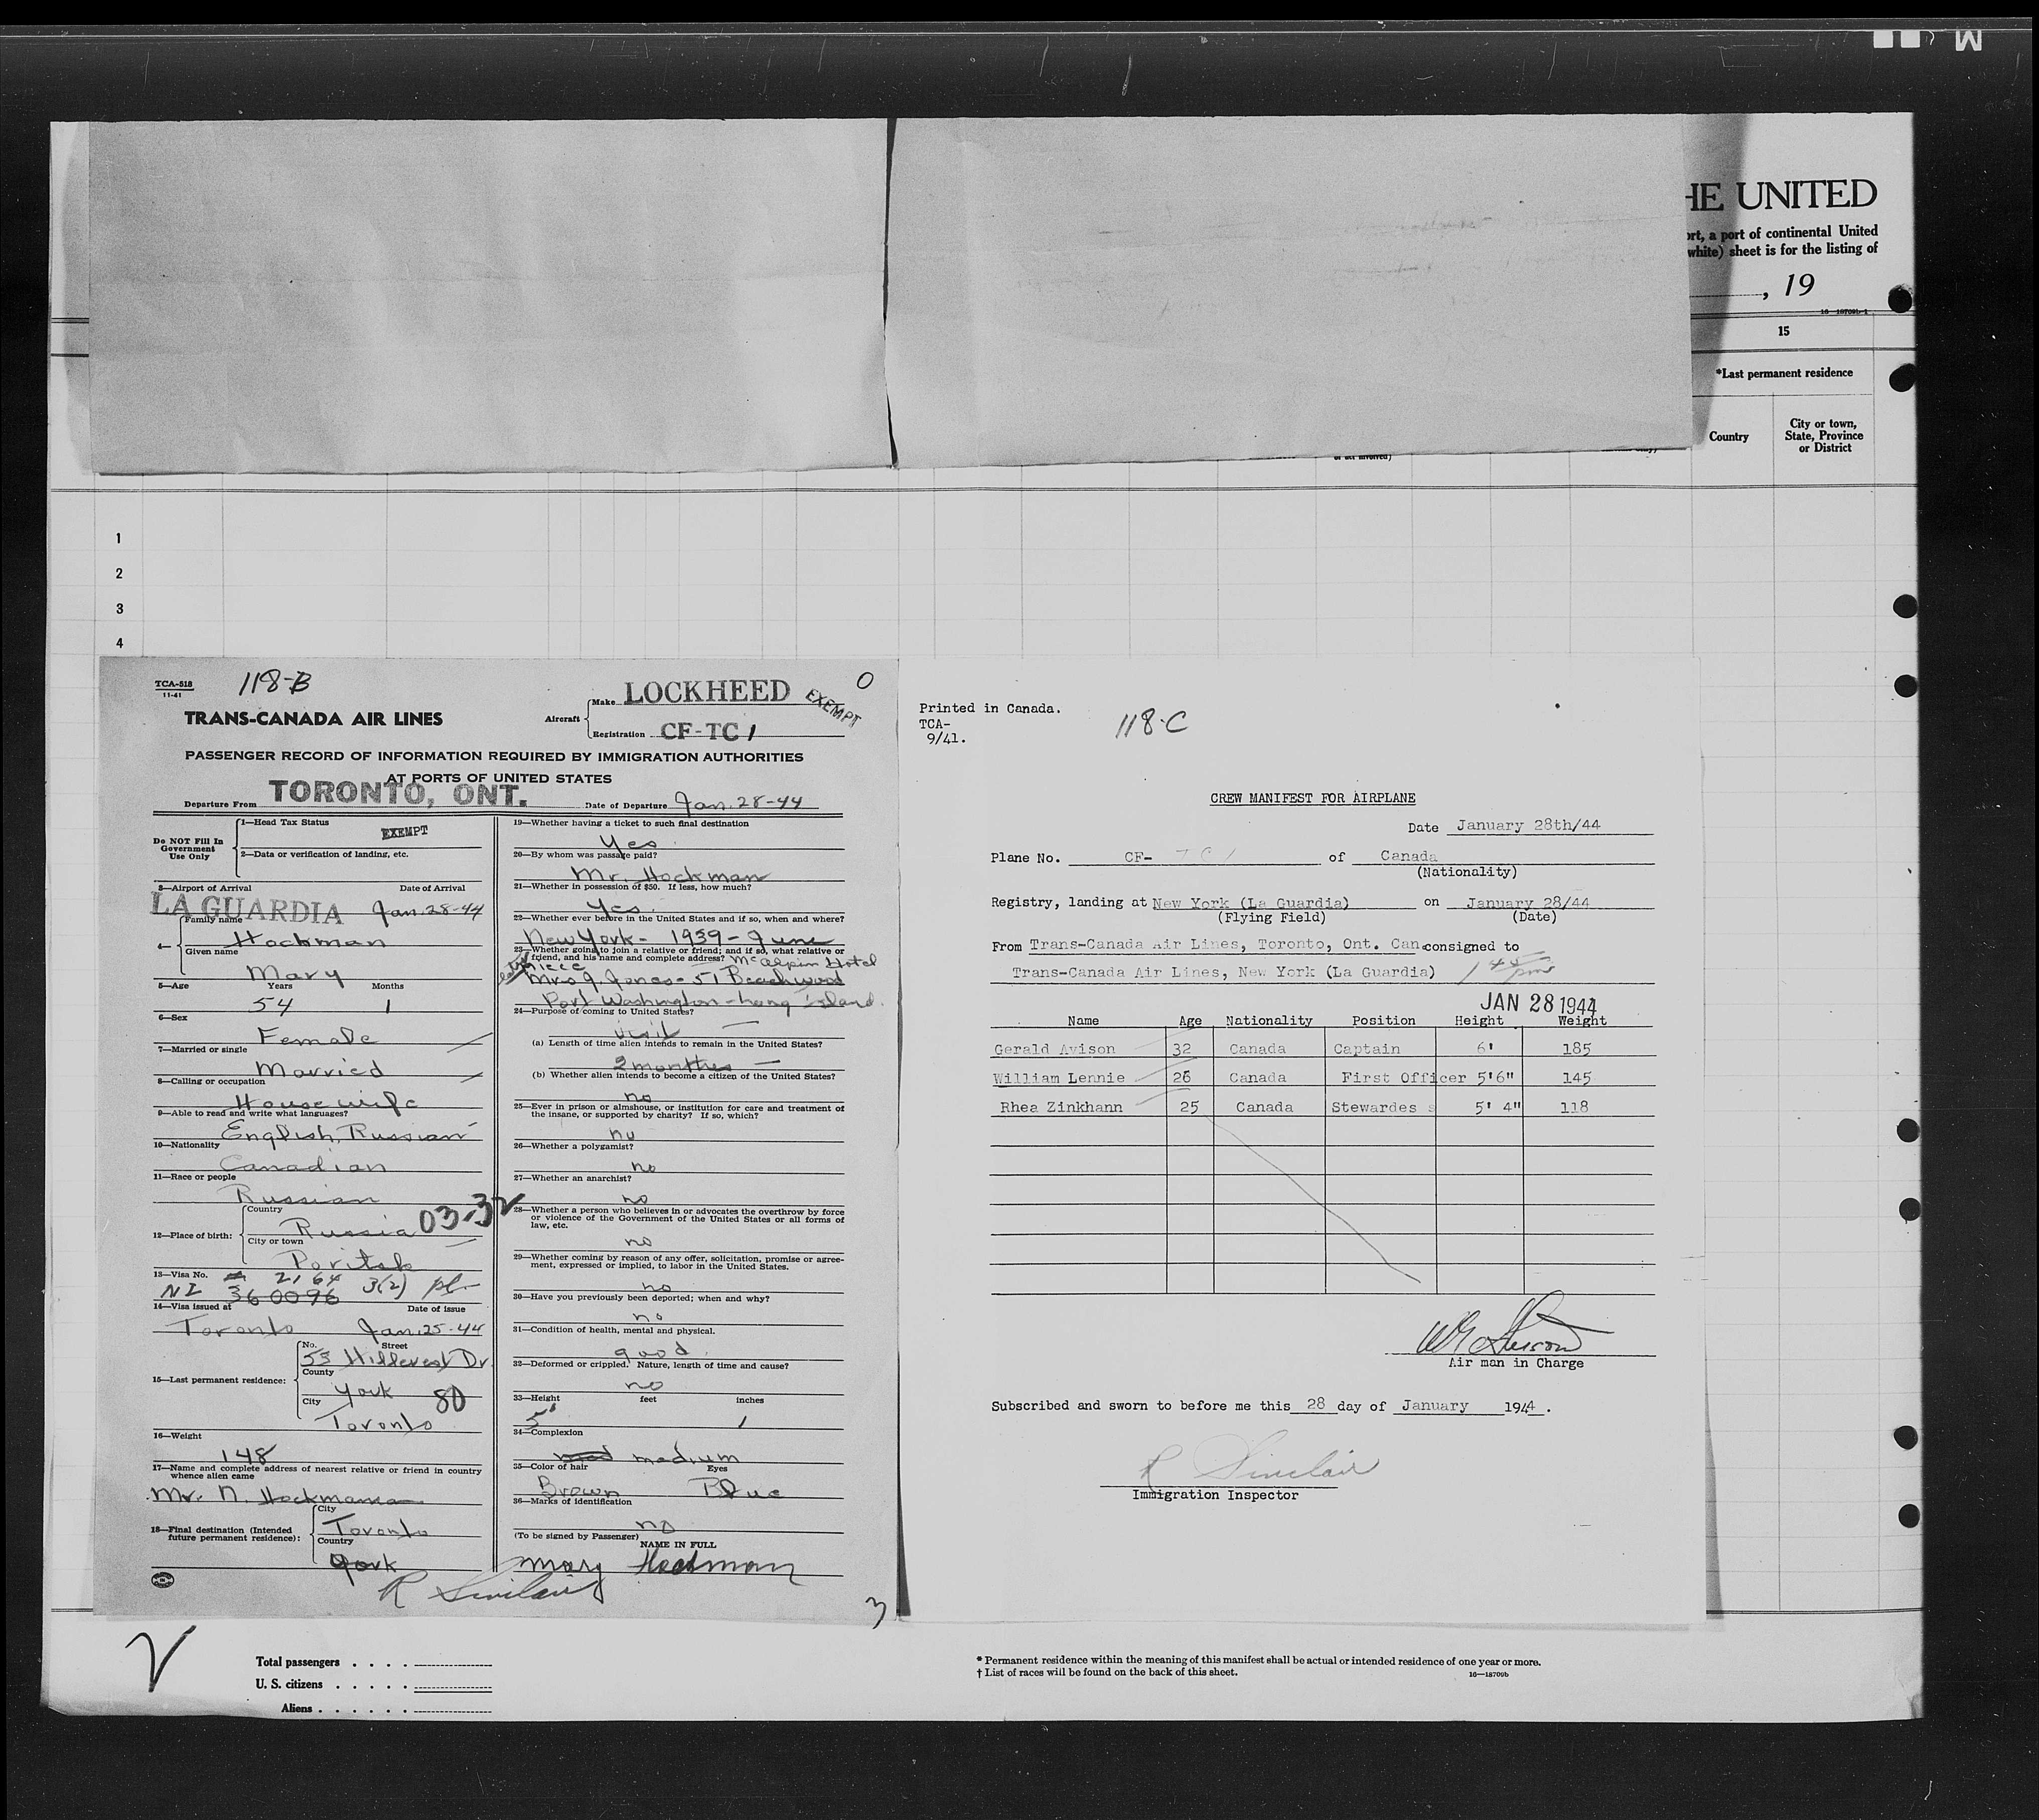 M
HE UNITED
ort, a port of continental United
white) sheet is for the listing of
, 19
16—18709b-1
15
*Last permanent residence
Country
City or town,
State, Province
or District
1
2
3
4
TCA-518
11-41
118-B
0
TRANS-CANADA AIR LINES
Aircraft
Make LOCKHEED
EXEMPT
Registration CF-TC 1
PASSENGER RECORD OF INFORMATION REQUIRED BY IMMIGRATION AUTHORITIES
AT PORTS OF UNITED STATES
Departure From TORONTO, ONT. Date of Departure Jan. 28-44
Do NOT Fill In
Government
Use Only
1—Head Tax Status
EXEMPT
2—Data or verification of landing, etc.
3—Airport of Arrival Date of Arrival
LA GUARDIA Jan. 28-44
4—
Family name
Hockman
Given name
Mary
5—Age Years Months
54 1
6—Sex
Female
7—Married or single
Married
8—Calling or occupation
Housewife
9—Able to read and write what languages?
English, Russian
10—Nationality
Canadian
11—Race or people
Russian
12—Place of birth:
Country
Russia 03-32
City or town
Poritsk
13—Visa No. 2164 3(2)
NI 360096
14—Visa issued at Date of issue
Toronto Jan. 25-44
15—Last permanent residence:
No. Street
53 Hillcrest Dr.
County
York 80
City
Toronto
16—Weight
148
17—Name and complete address of nearest relative or friend in country
whence alien came
Mr. N. Hockman
18—Final destination (Intended
future permanent residence):
City
Toronto
Country
York
19—Whether having a ticket to such final destination
Yes
20—By whom was passage paid?
Mr. Hockman
21—Whether in possession of $50. If less, how much?
Yes
22—Whether ever before in the United States and if so, when and where?
New York - 1939 - June
23—Whether going to join a relative or friend; and if so, what relative or
friend, and his name and complete address? McAlpin Hotel
niece
Mrs J. Jones - 51 Beachwood
Port Washington - Long Island
24—Purpose of coming to United States?
visit
(a) Length of time alien intends to remain in the United States?
2 months
(b) Whether alien intends to become a citizen of the United States?
no
25—Ever in prison or almshouse, or institution for care and treatment of
the insane, or supported by charity? If so, which?
no
26—Whether a polygamist?
no
27—Whether an anarchist?
no
28—Whether a person who believes in or advocates the overthrow by force
or violence of the Government of the United States or all forms of
law, etc.
no
29—Whether coming by reason of any offer, solicitation, promise or agree-
ment, expressed or implied, to labor in the United States.
no
30—Have you previously been deported; when and why?
no
31—Condition of health, mental and physical.
good
32—Deformed or crippled. Nature, length of time and cause?
no
33—Height feet inches
5' 1
34—Complexion
medium
35—Color of hair Eyes
Brown Blue
36—Marks of identification
no
(To be signed by Passenger) NAME IN FULL
Mary Hockman
R Sinclair
3
Printed in Canada.
TCA-
9/41.
118-C
CREW MANIFEST FOR AIRPLANE
Date January 28th/44
Plane No. CF- TC1 of Canada
(Nationality)
Registry, landing at New York (La Guardia) on January 28/44
(Flying Field) (Date)
From Trans-Canada Air Lines, Toronto, Ont. Can consigned to
Trans-Canada Air Lines, New York (La Guardia) 1 45 pm
JAN 28 1944
Name Age Nationality Position Height Weight
Gerald Avison 32 Canada Captain 6' 185
William Lennie 26 Canada First Officer 5'6" 145
Rhea Zinkhann 25 Canada Stewardes s 5' 4" 118
Air man in Charge
Subscribed and sworn to before me this 28 day of January 1944.
R Sinclair
Immigration Inspector
Total passengers . . . .
U. S. citizens . . . . .
Aliens . . . . . .
* Permanent residence within the meaning of this manifest shall be actual or intended residence of one year or more.
† List of races will be found on the back of this sheet. 16—18709b